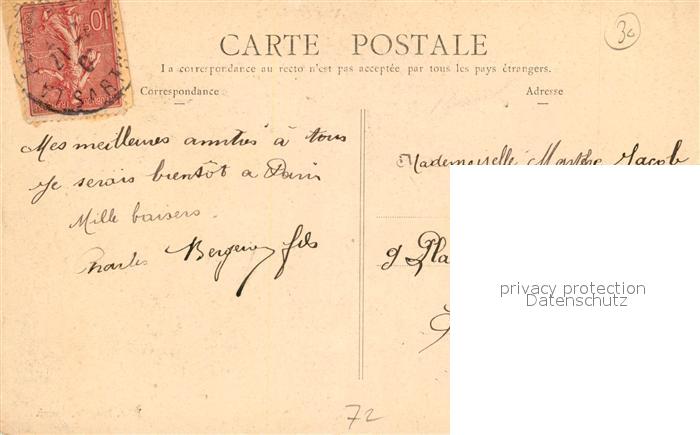 10c
30
CARTE POSTALE
La correspondance au recto n'est pas acceptée par tous les pays étrangers.
Correspondance
Adresse
Mes meilleures amitiés à tous
Je serais bientôt a Paris
Mille baisers.
Charles fils
Mademoiselle Marthe Jacob
9 Pla
privacy protection
Datenschutz
72